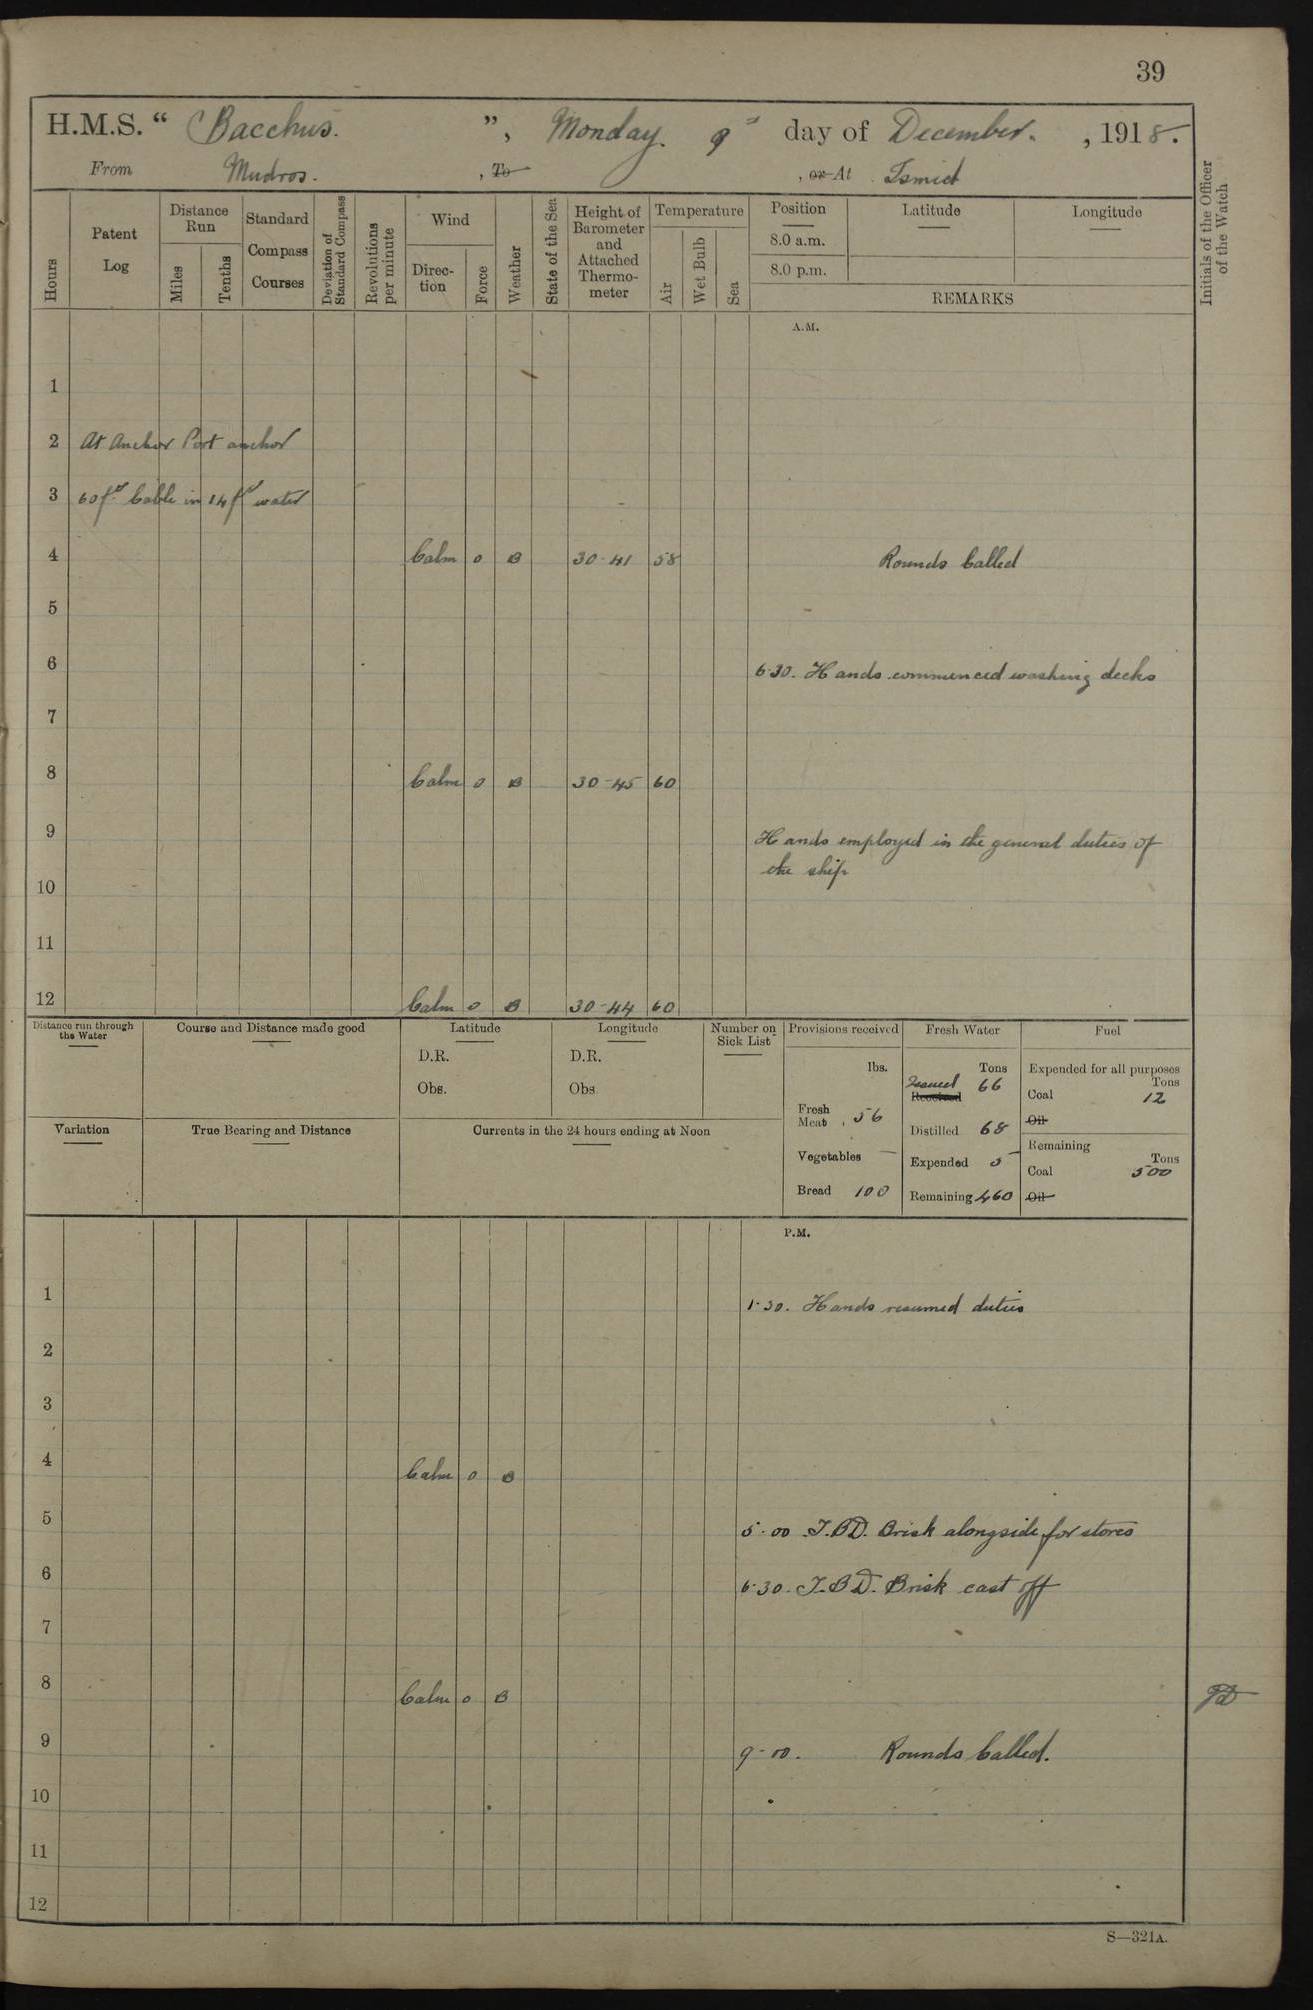 39
H.M.S. “ Bacchus. ”, Monday. 9" day of December. , 1918.
From Mudros. , To , or At Ismid
Hours
Patent Log
Distance Run
Miles
Tenths
Standard Compass Courses
Deviation of Standard Compass
Revolutions per minute
Wind
Direc-tion
Force
Weather
State of the Sea
Height of Barometer and Attached Thermo-meter
Temperature
Air
Wet Bulb
Sea
Position
8.0 a.m.
8.0 p.m.
Latitude
Longitude
REMARKS
Initials of the Officer of the Watch
A.M.
1
2 At Anchor Port anchor
3 60 fms Cable in 14 fms water
4 Calm 0 B 30-41 58 Rounds Called
5
6 6-30. Hands commenced washing decks
7
8 Calm 0 B 30-45 60
9 Hands employed in the general duties of
the ship
10
11
12 Calm 0 B 30-44 60
Distance run through the Water
Course and Distance made good
Latitude
D.R.
Obs.
Longitude
D.R.
Obs.
Number on Sick List
Provisions received
lbs.
Fresh Meat , 56
Vegetables —
Bread 100
Fresh Water
Tons
Issued 66
Received
Distilled 68
Expended 5
Remaining 460
Fuel
Expended for all purposes
Tons
Coal 12
Oil
Remaining
Tons
Coal 500
Oil
Variation
True Bearing and Distance
Currents in the 24 hours ending at Noon
P.M.
1 1-30. Hands resumed duties
2
3
4 Calm 0 B
5 5-00 T.B.D. Brisk alongside for stores
6 6-30. T.B.D. Brisk cast off
7
8 Calm 0 B
9 9-00. Rounds Called.
10
11
12
S—321A.